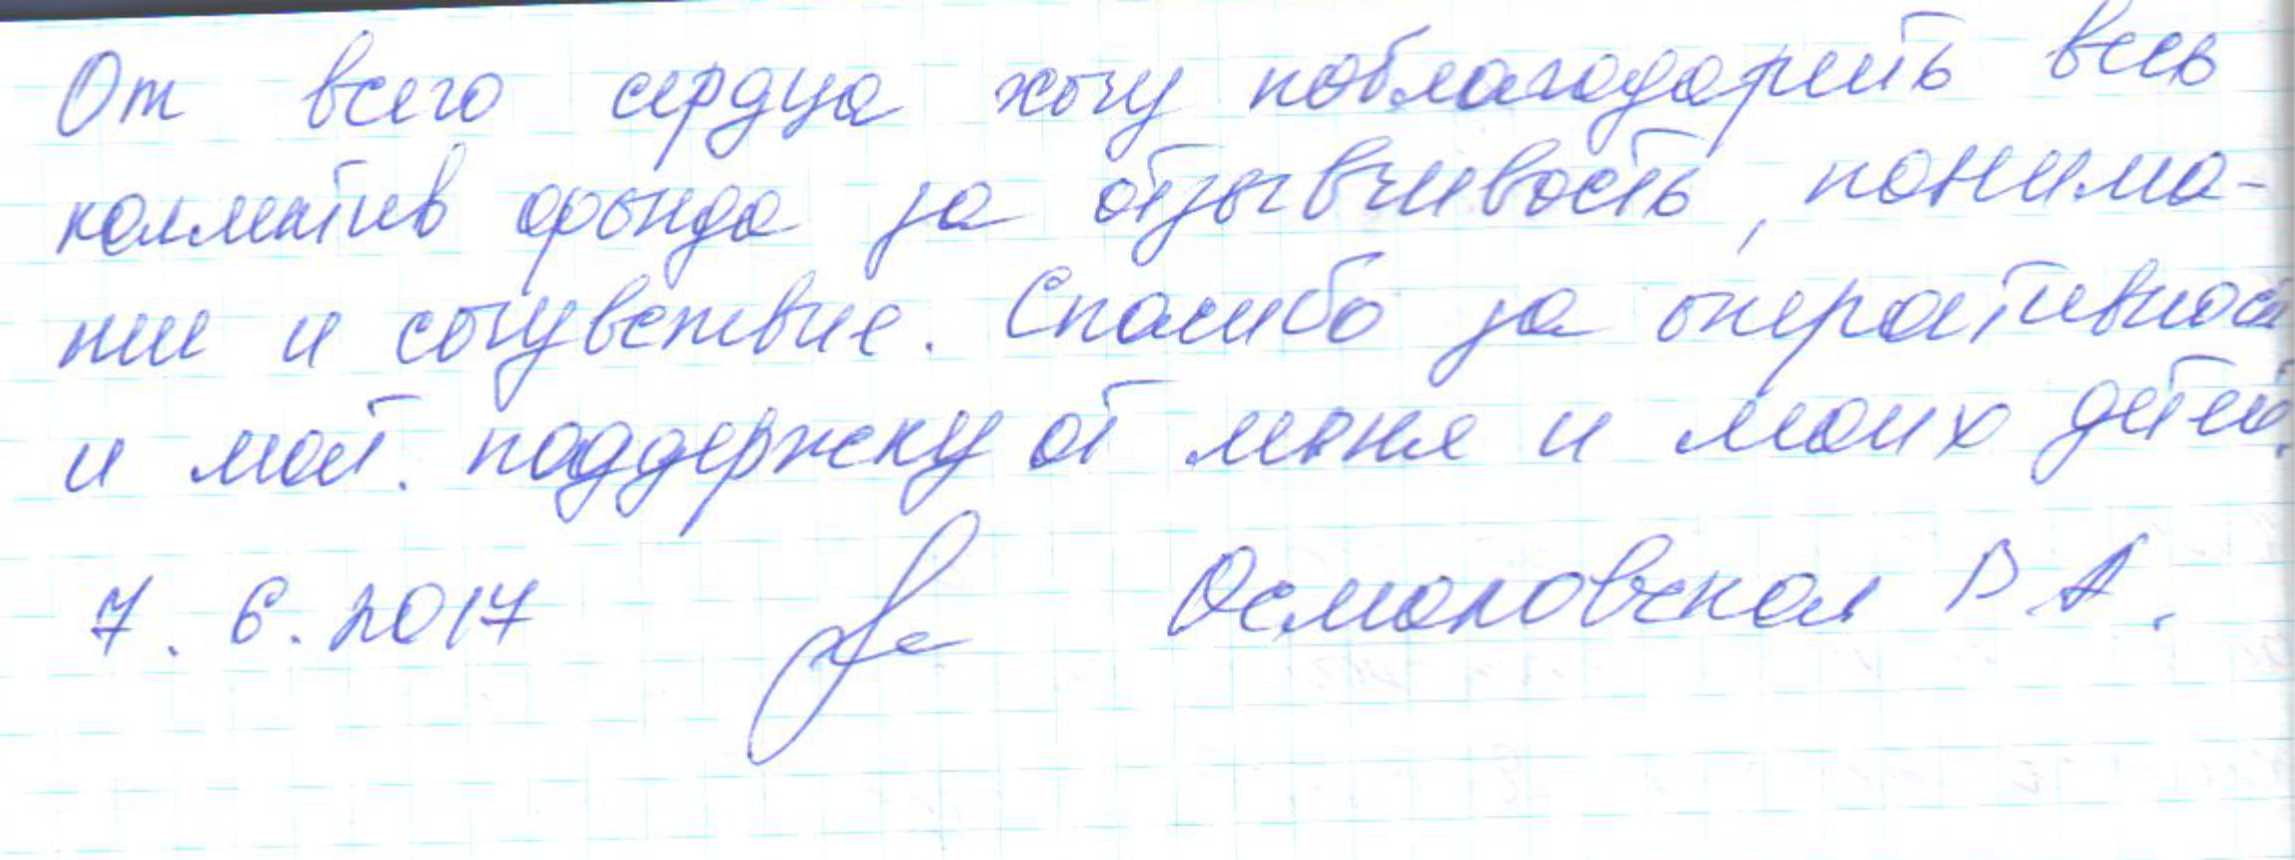 От всего сердца хочу поблагодарить весь
коллектив фонда за отзывчивость, понима-
ние и сочувствие. Спасибо за оперативност
и мат. поддержку от меня и моих детей.
7. 6. 2017 Осмоловская В А.